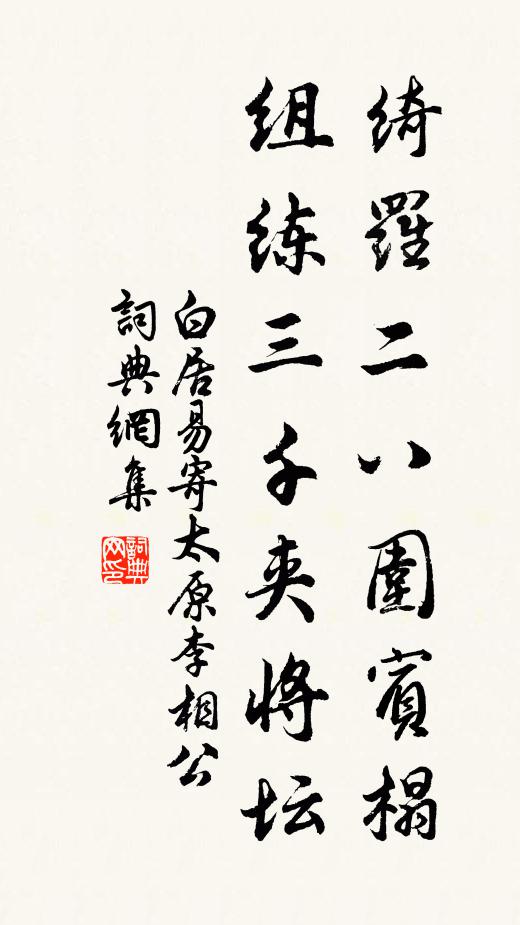 綺羅二八圍賓榻
组练三千夹將坛
白居易寄太原李相公
詞典網集
詞典网印